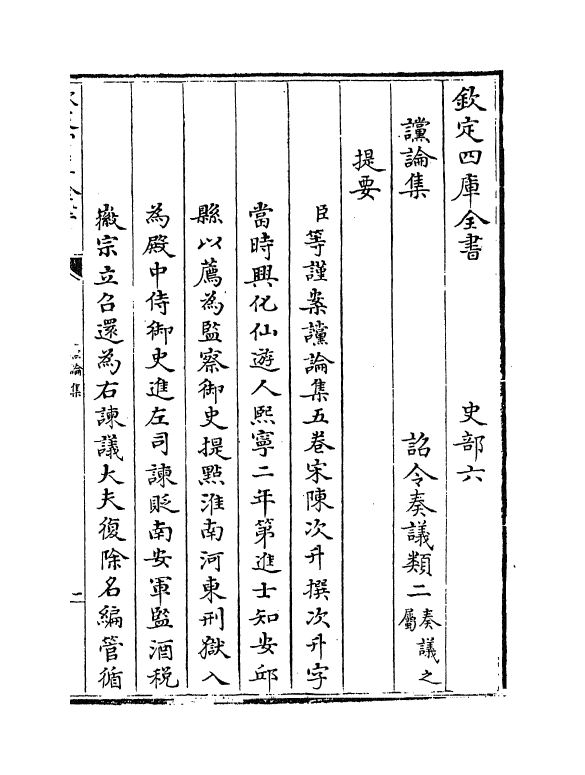 欽定四庫全書　史部六
讜論集　詔令奏議類二奏議之屬
提要
臣等謹案讜論集五卷宋陳次升撰次升字
當時興化仙遊人熙寧二年第進士知安邱
縣以薦為監察御史提點淮南河東刑獄入
為殿中侍御史進左司諫貶南安軍監酒税
徽宗立召還為右諫議大夫復除名編管循
論集